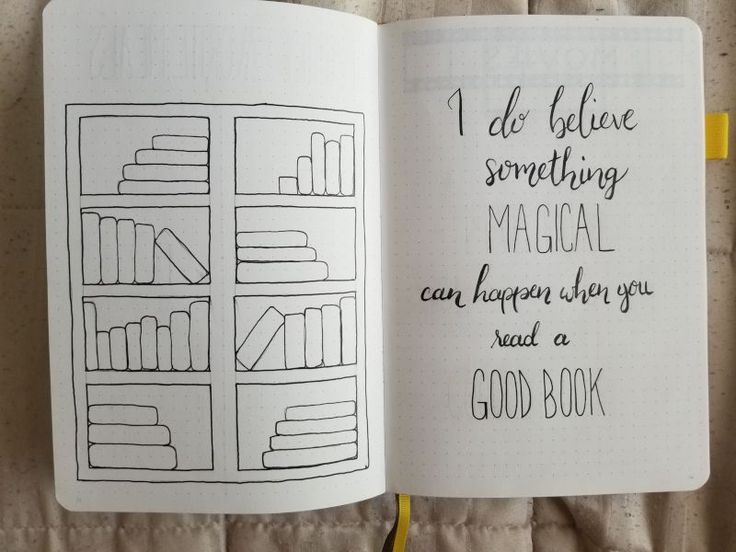 I do believe
something
MAGICAL
can happen when you
read a
GOOD BOOK